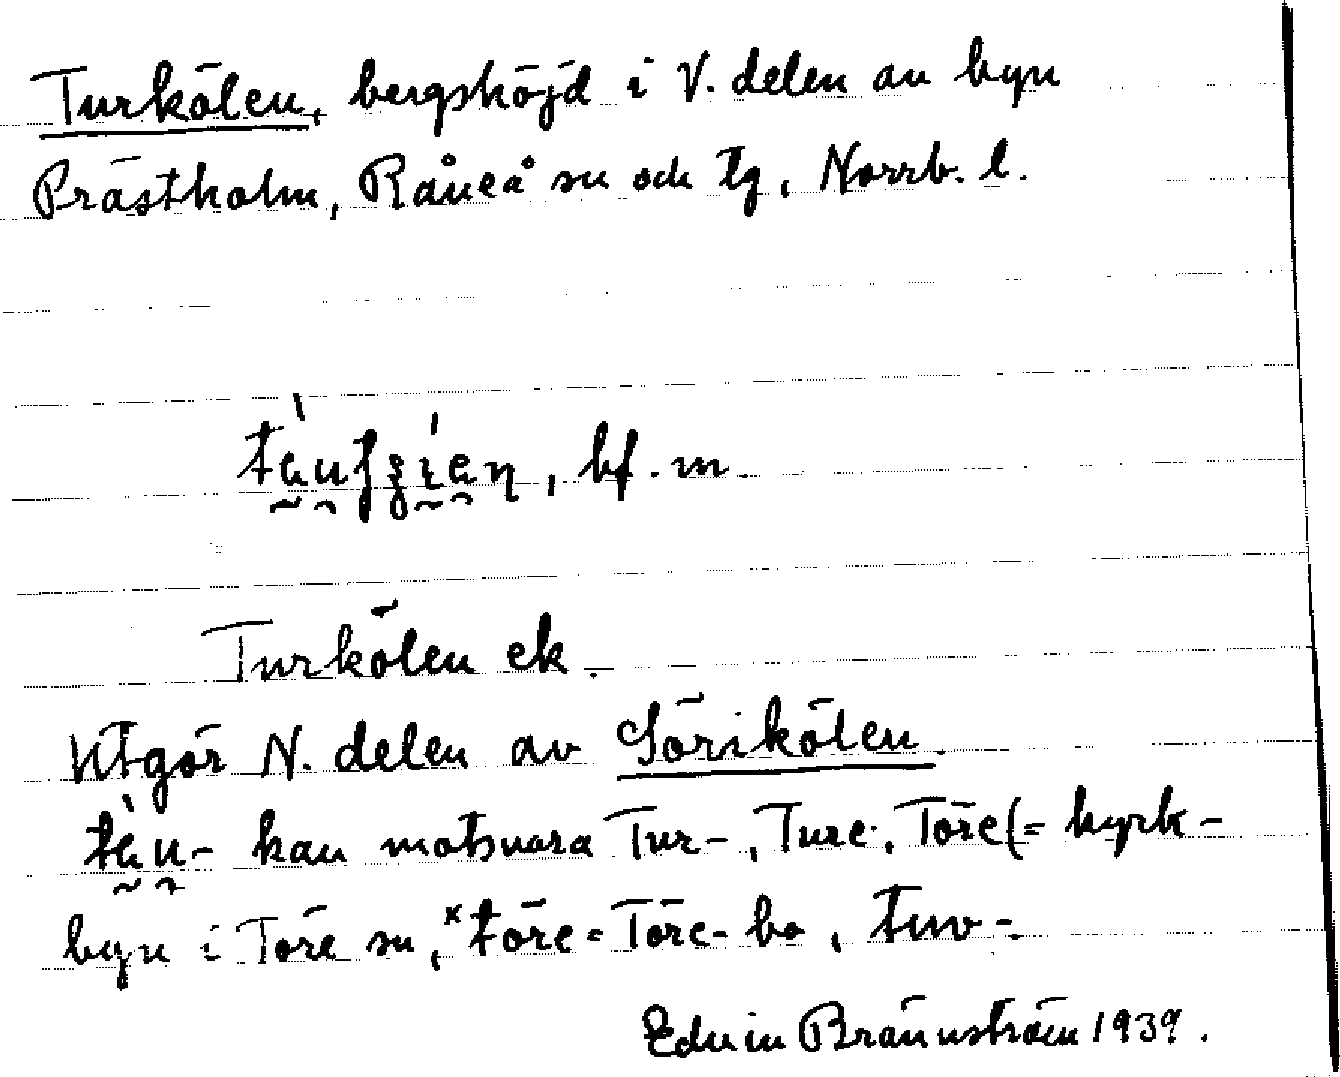 Turkölen, bergshöjd i V. delen av byn
Prästholm, Råneå sn och tg, Norrb. l.
bf. m.
Turkölen ek.
Utgör N. delen av Sörikölen.
kan motsvara Tur-, Ture, Töre (= kyrk-
byn i Töre sn, *töre = Töre-bo, tuv-.
Edvin Brännström 1939.